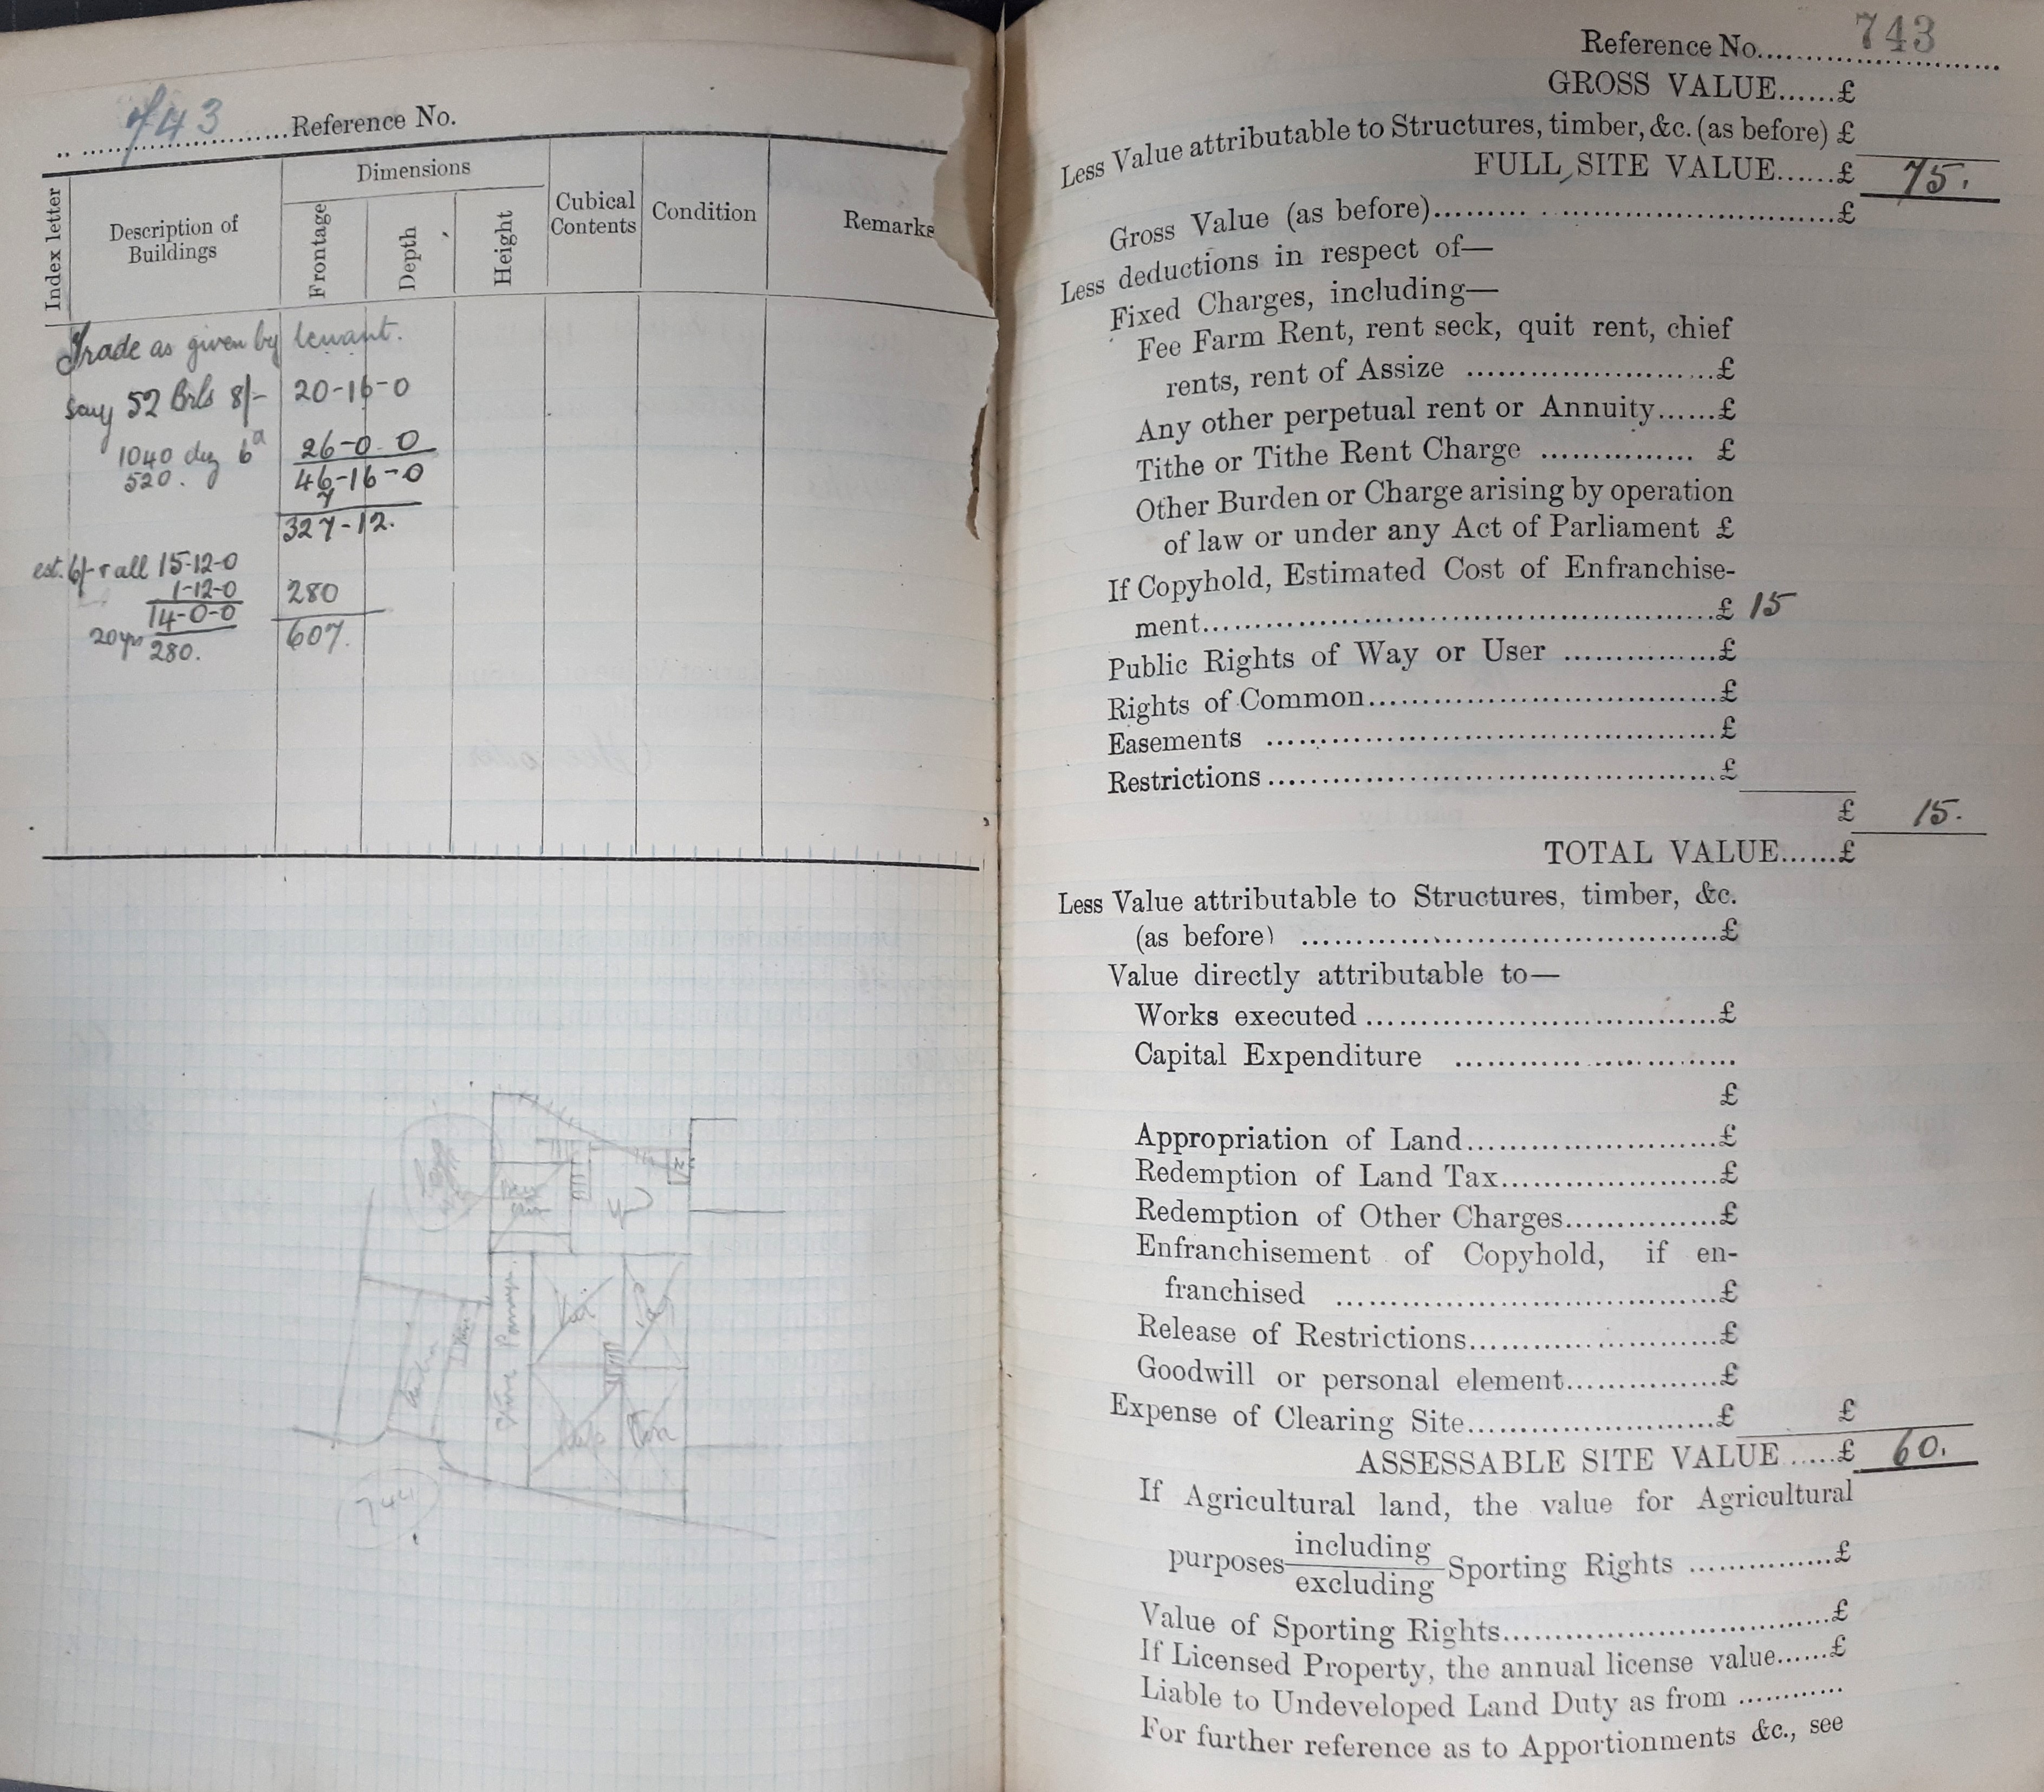 743 Reference No.
Index letter
Description of Buildings
Dimensions
Frontage
Depth
Height
Cubical Contents
Condition
Remarks
Trade as given by tenant.
Say 52 Brls 8/- 20-16-0
1040 doz 6d 26-0-0
520. 46-16-0
7
327-12.
est. 6/- r all 15-12-0
1-12-0 280
14-0-0
20 yrs 280. 607.
Store Passage.
744
Reference No. 743
GROSS VALUE......£
Less Value attributable to Structures, timber, &c. (as before) £
FULL SITE VALUE......£ 75.
Gross Value (as before)..............................£
Less deductions in respect of—
Fixed Charges, including—
Fee Farm Rent, rent seck, quit rent, chief
rents, rent of Assize ..............................£
Any other perpetual rent or Annuity......£
Tithe or Tithe Rent Charge ............... £
Other Burden or Charge arising by operation
of law or under any Act of Parliament £
If Copyhold, Estimated Cost of Enfranchise-
ment..............................£ 15
Public Rights of Way or User ...............£
Rights of Common..............................£
Easements ..............................£
Restrictions..............................£
£ 15.
TOTAL VALUE......£
Less Value attributable to Structures, timber, &c.
(as before) ..............................£
Value directly attributable to—
Works executed ..............................£
Capital Expenditure ..............................
£
Appropriation of Land..............................£
Redemption of Land Tax..............................£
Redemption of Other Charges...............£
Enfranchisement of Copyhold, if en-
franchised ..............................£
Release of Restrictions..............................£
Goodwill or personal element...............£
Expense of Clearing Site..............................£ £
ASSESSABLE SITE VALUE ......£ 60.
If Agricultural land, the value for Agricultural
purposes including
excluding Sporting Rights ...............£
Value of Sporting Rights..............................£
If Licensed Property, the annual license value......£
Liable to Undeveloped Land Duty as from ............
For further reference as to Apportionments &c., see